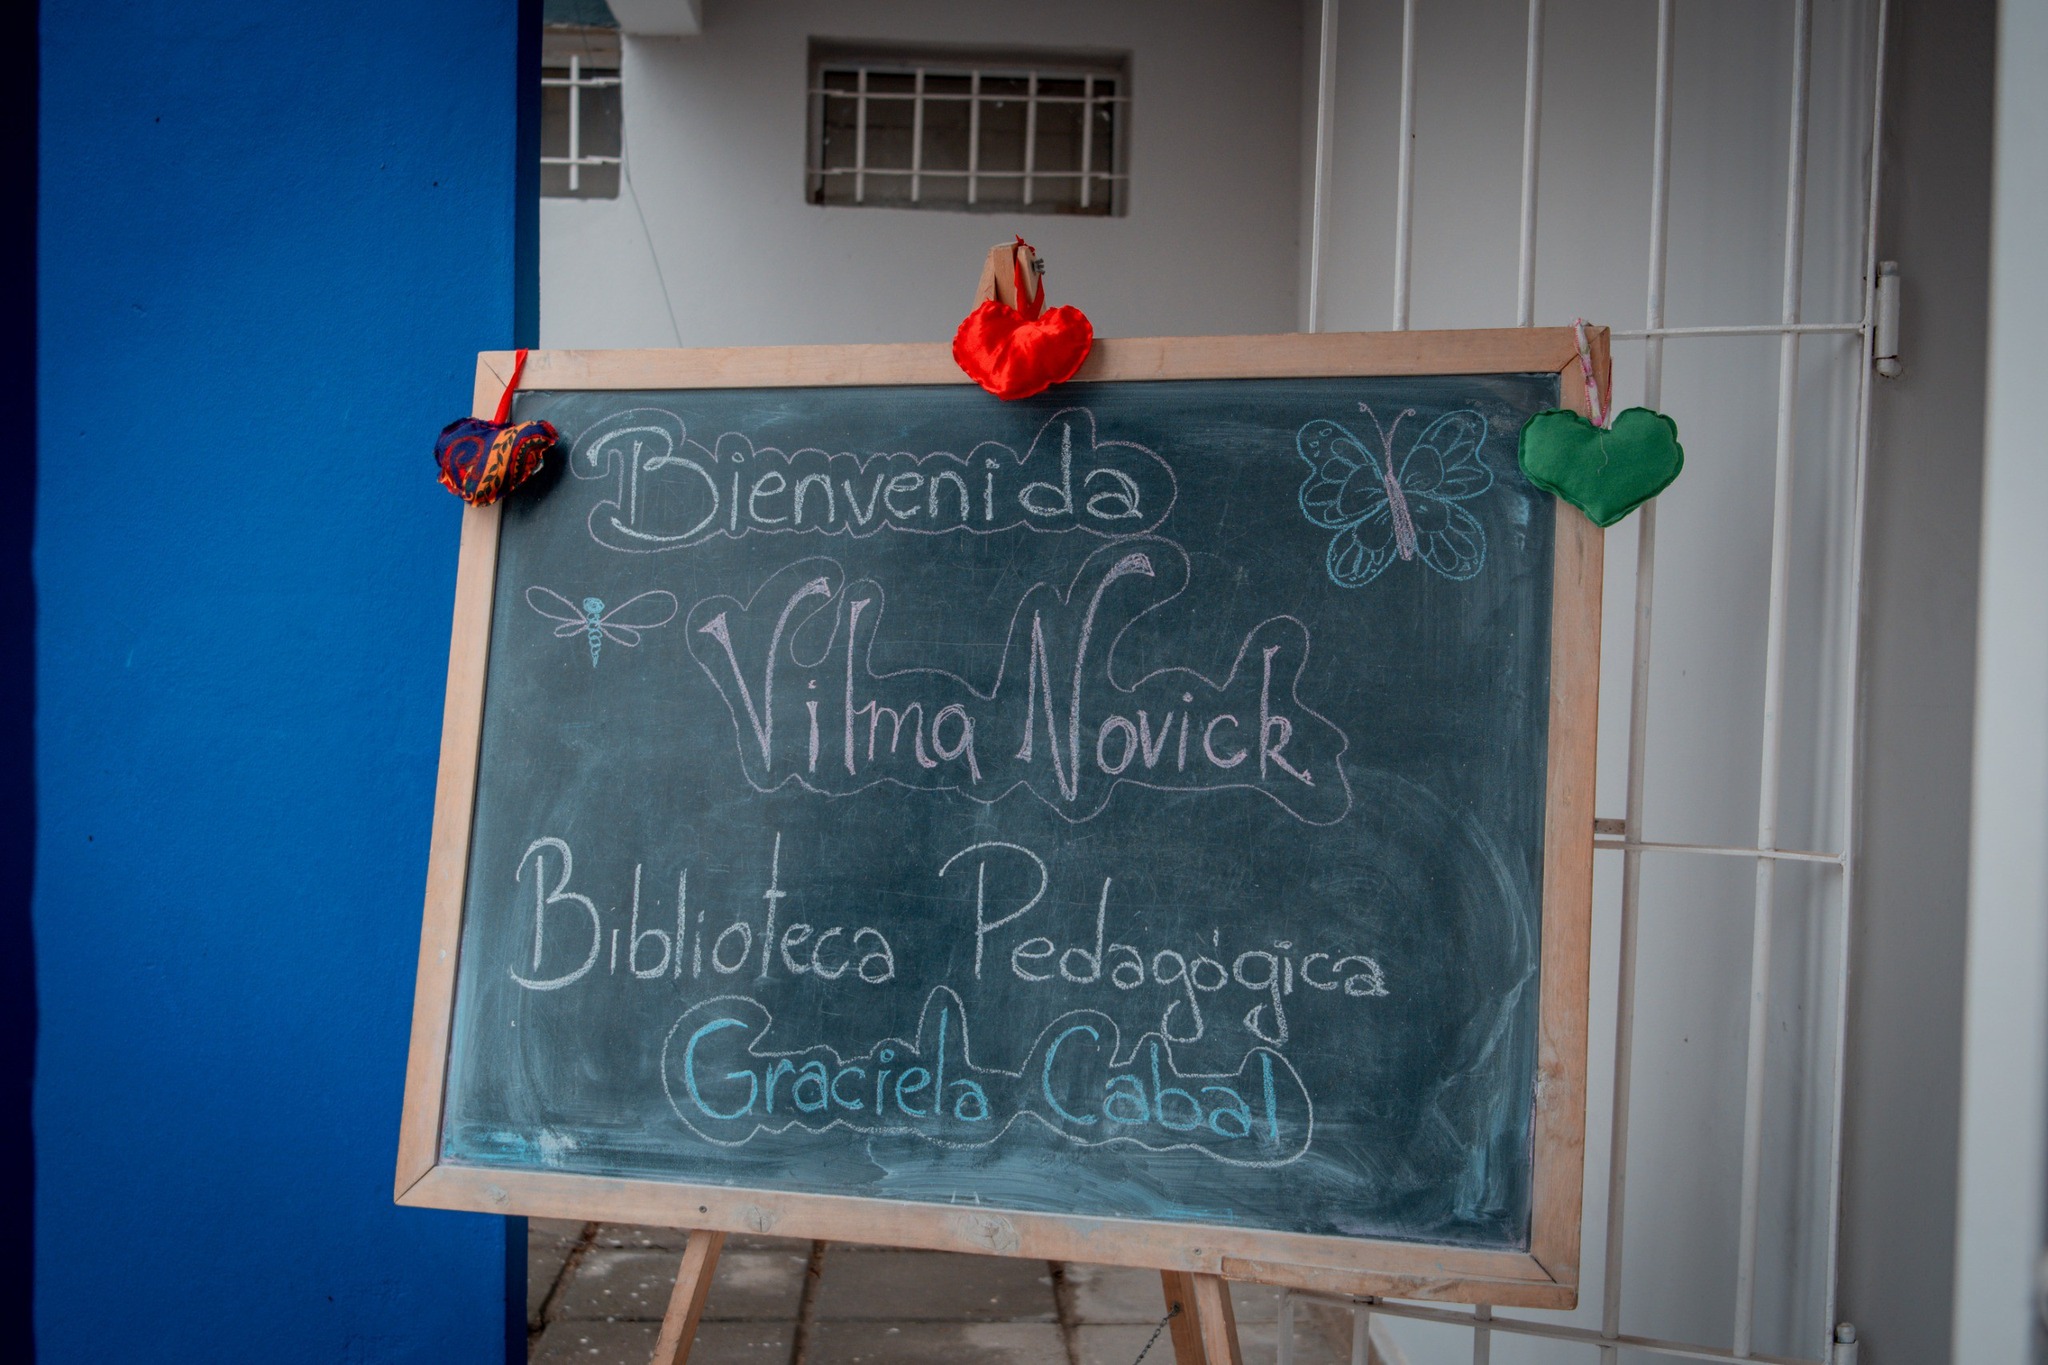 Bienvenida
Vilma Novick
Biblioteca Pedagógica
Graciela Cabal